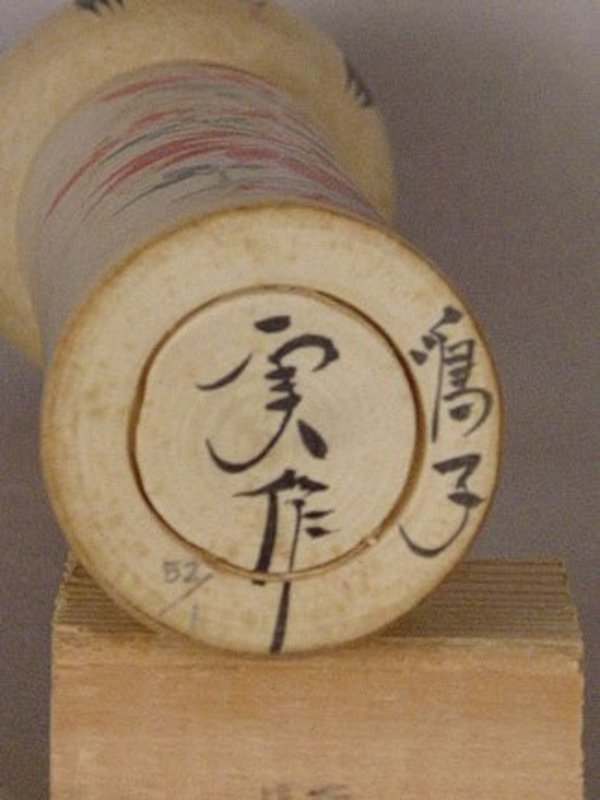 子
実作
52/1